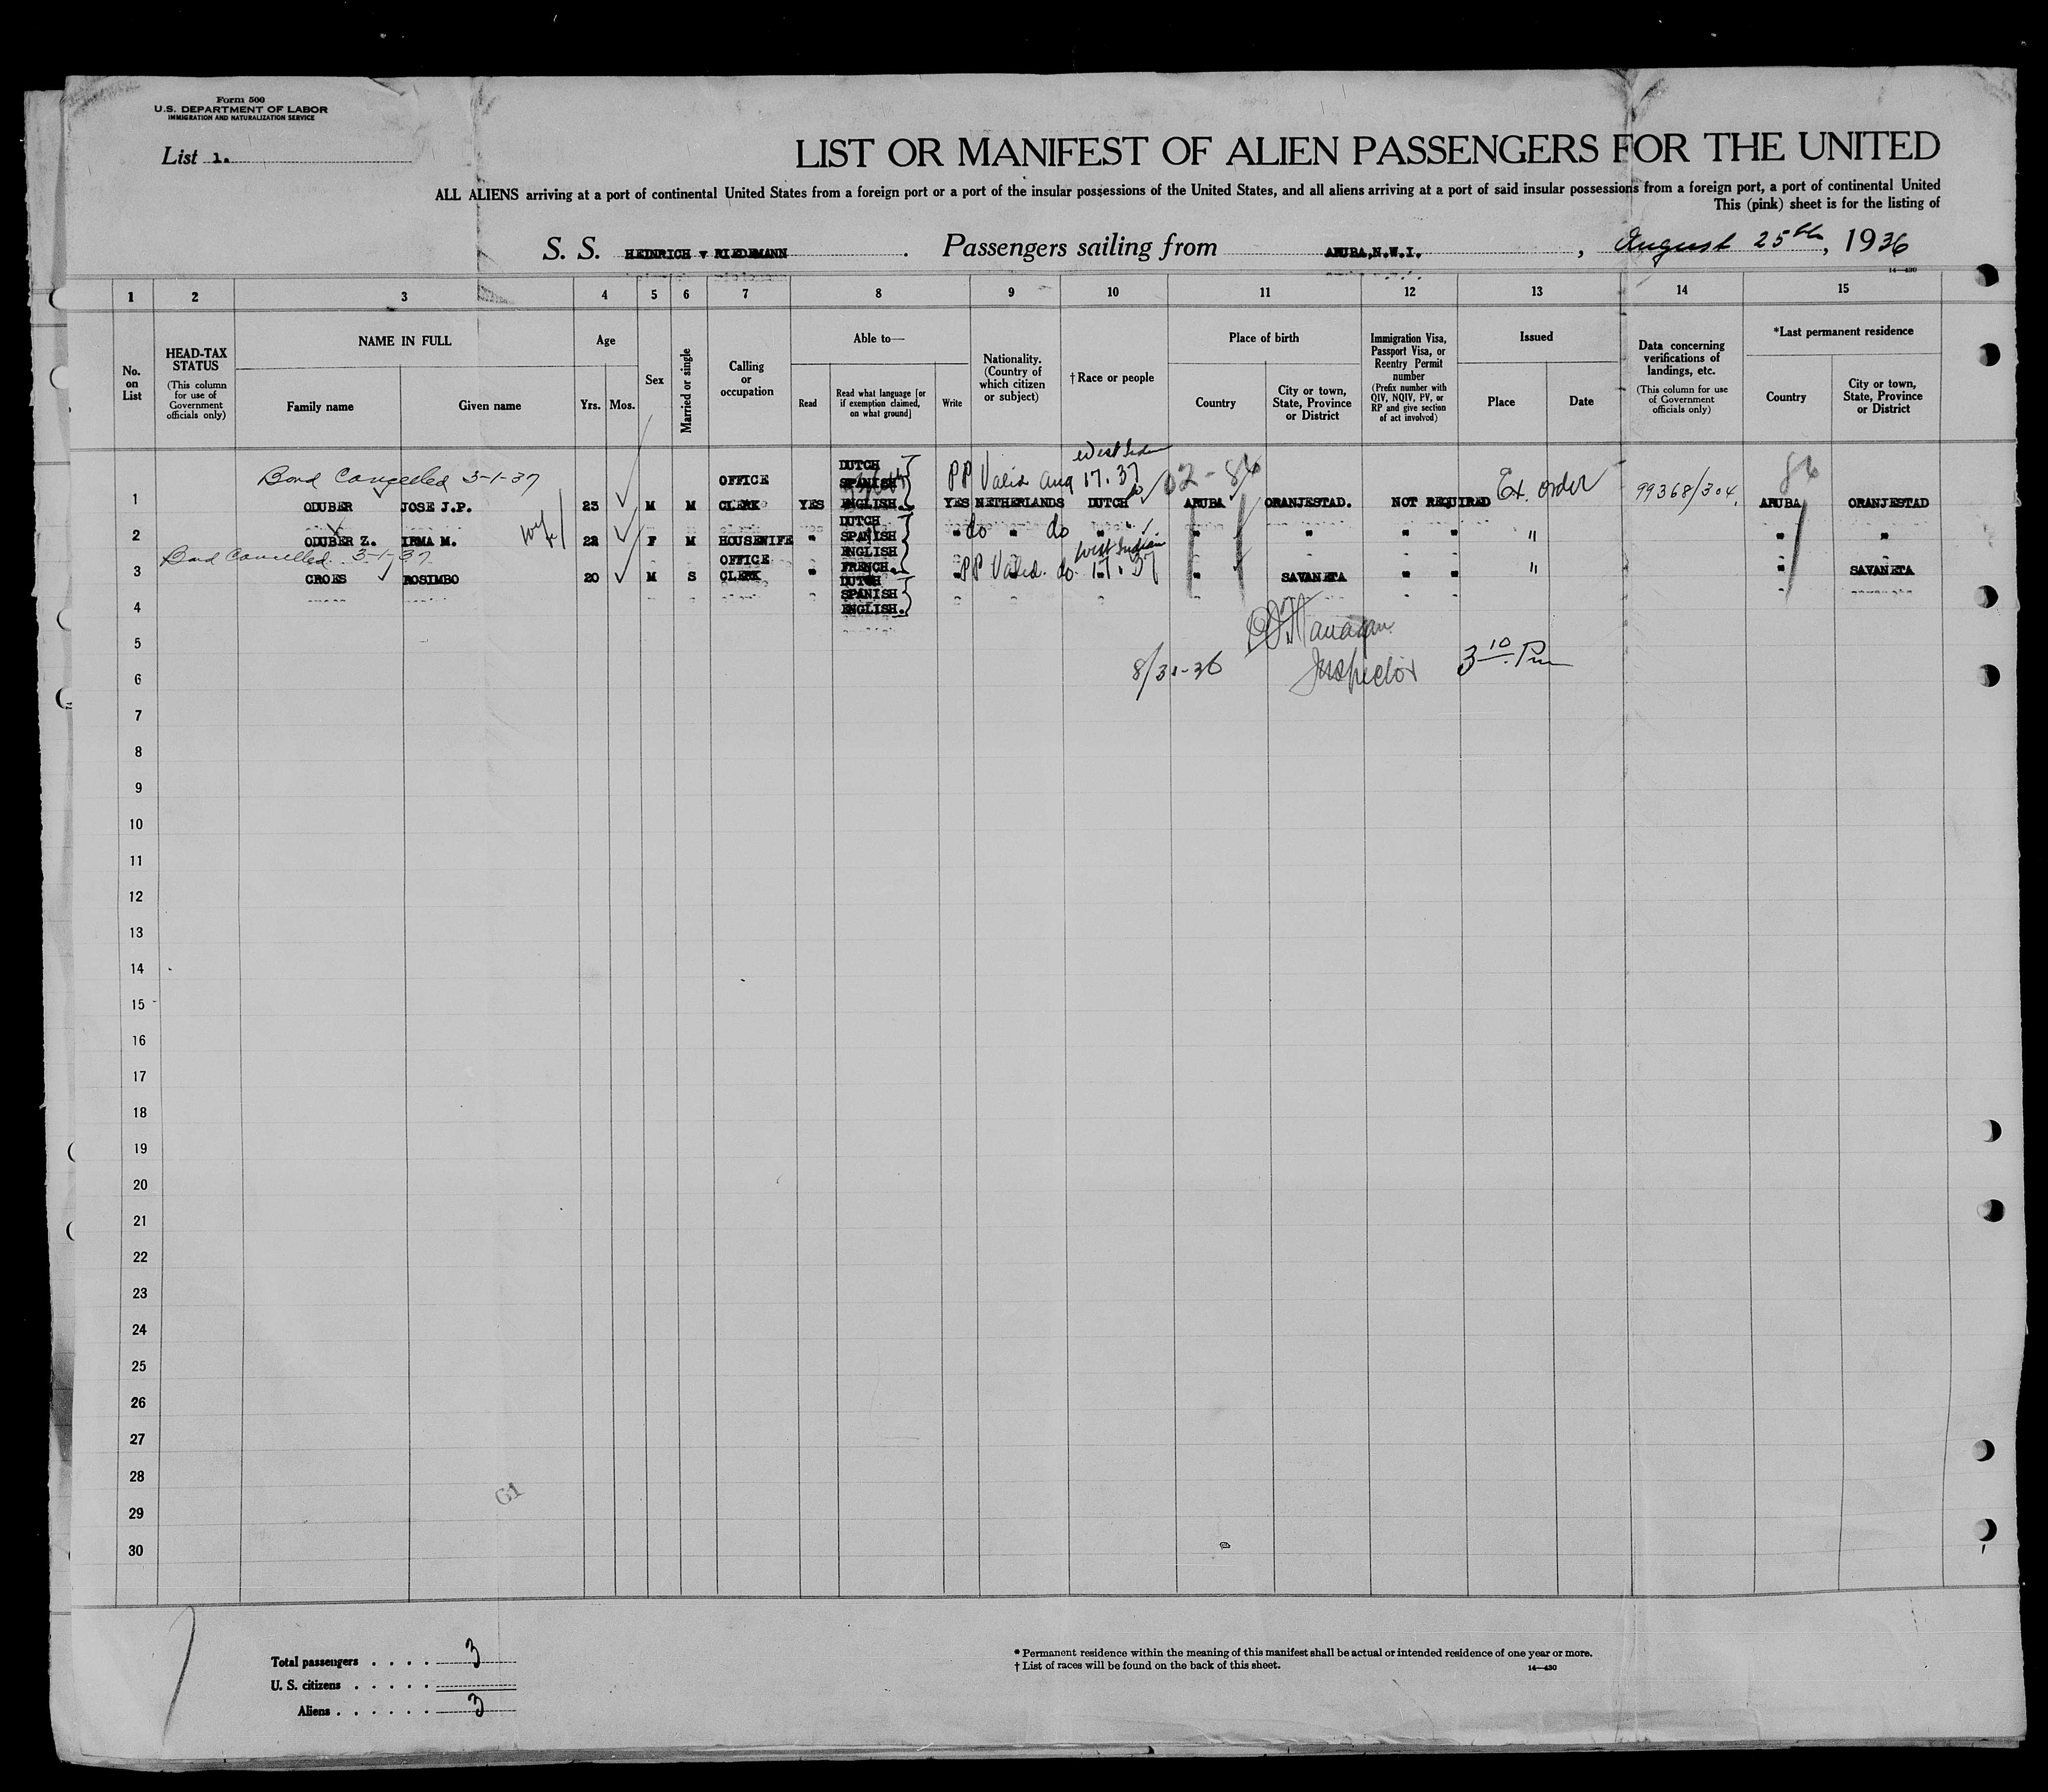 Form 500
U.S. DEPARTMENT OF LABOR
IMMIGRATION AND NATURALIZATION SERVICE
List 1.
LIST OR MANIFEST OF ALIEN PASSENGERS FOR THE UNITED
ALL ALIENS arriving at a port of continental United States from a foreign port or a port of the insular possessions of the United States, and all aliens arriving at a port of said insular possessions from a foreign port, a port of continental United
This (pink) sheet is for the listing of
S. S. HEINRICH v RIEDEMANN. Passengers sailing from ARUBA,N.W.I., August 25th, 1936
14—430
1 2 3 4 5 6 7 8 9 10 11 12 13 14 15
No. on List
HEAD-TAX STATUS (This column for use of Government officials only)
NAME IN FULL
Family name Given name
Age
Yrs. Mos.
Sex
Married or single
Calling or occupation
Able to—
Read
Read what language [or if exemption claimed, on what ground]
Write
Nationality. (Country of which citizen or subject)
†Race or people
Place of birth
Country
City or town, State, Province or District
Immigration Visa, Passport Visa, or Reentry Permit number (Prefix number with QIV, NQIV, PV, or RP and give section of act involved)
Issued
Place Date
Data concerning verifications of landings, etc. (This column for use of Government officials only)
*Last permanent residence
Country
City or town, State, Province or District
Bond Cancelled 3-1-37 PP Valid Aug 17.37 02-86 86
1 ODUBER JOSE J.P. 23 M M OFFICE CLERK YES DUTCH SPANISH ENGLISH. YES NETHERLANDS DUTCH ARUBA ORANJESTAD. NOT REQUIRED Ex. order 99368/304. ARUBA ORANJESTAD
2 ODUBER Z. IRMA M. wife 22 F M HOUSEWIFE " DUTCH SPANISH ENGLISH FRENCH. " do " do " " " " " " " " "
Bond Cancelled 3-1-37 PP Valid. do 17.37 West Indian
3 CROES ROSIMBO 20 M S OFFICE CLERK " DUTCH SPANISH ENGLISH. " " " " SAVANETA " " " " SAVANETA
4
5
8/31-36 Inspector 3 10 Pm
6
7
8
9
10
11
12
13
14
15
16
17
18
19
20
21
22
23
24
25
26
27
28
G1
29
30
Total passengers . . . . 3
U. S. citizens . . . . .
Aliens . . . . . . 3
* Permanent residence within the meaning of this manifest shall be actual or intended residence of one year or more.
† List of races will be found on the back of this sheet.
14—430